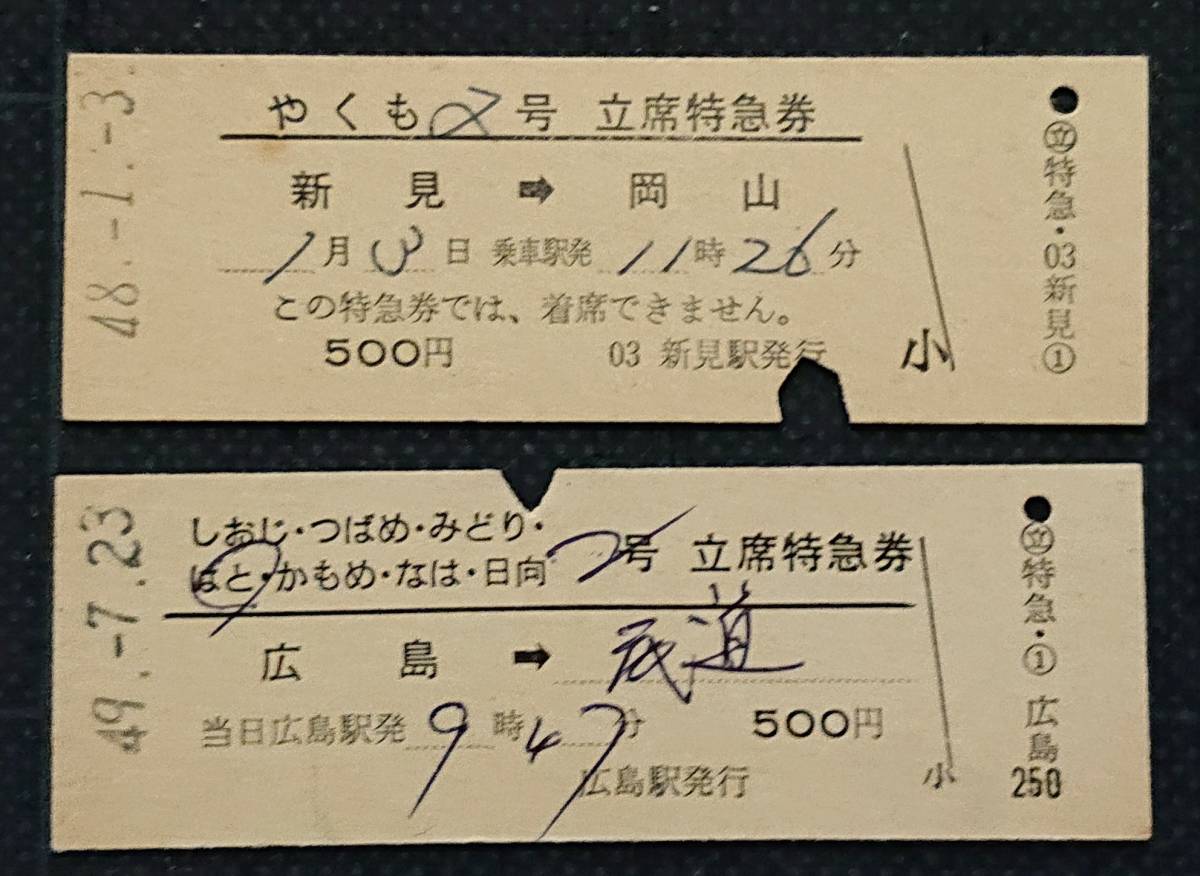 48.-1.-3
やくも2号 立席特急券
新見➡岡山
1月3日 乗車駅発 11時26分
この特急券では、着席できません。
500円 03 新見駅発行
小
㊢特急・03新見①
49.-7.23
しおじ・つばめ・みどり・
はと・かもめ・なは・日向 号 立席特急券
広島➡ 道
当日広島駅発 9時47分 500円
広島駅発行
小
特急・①広島
250